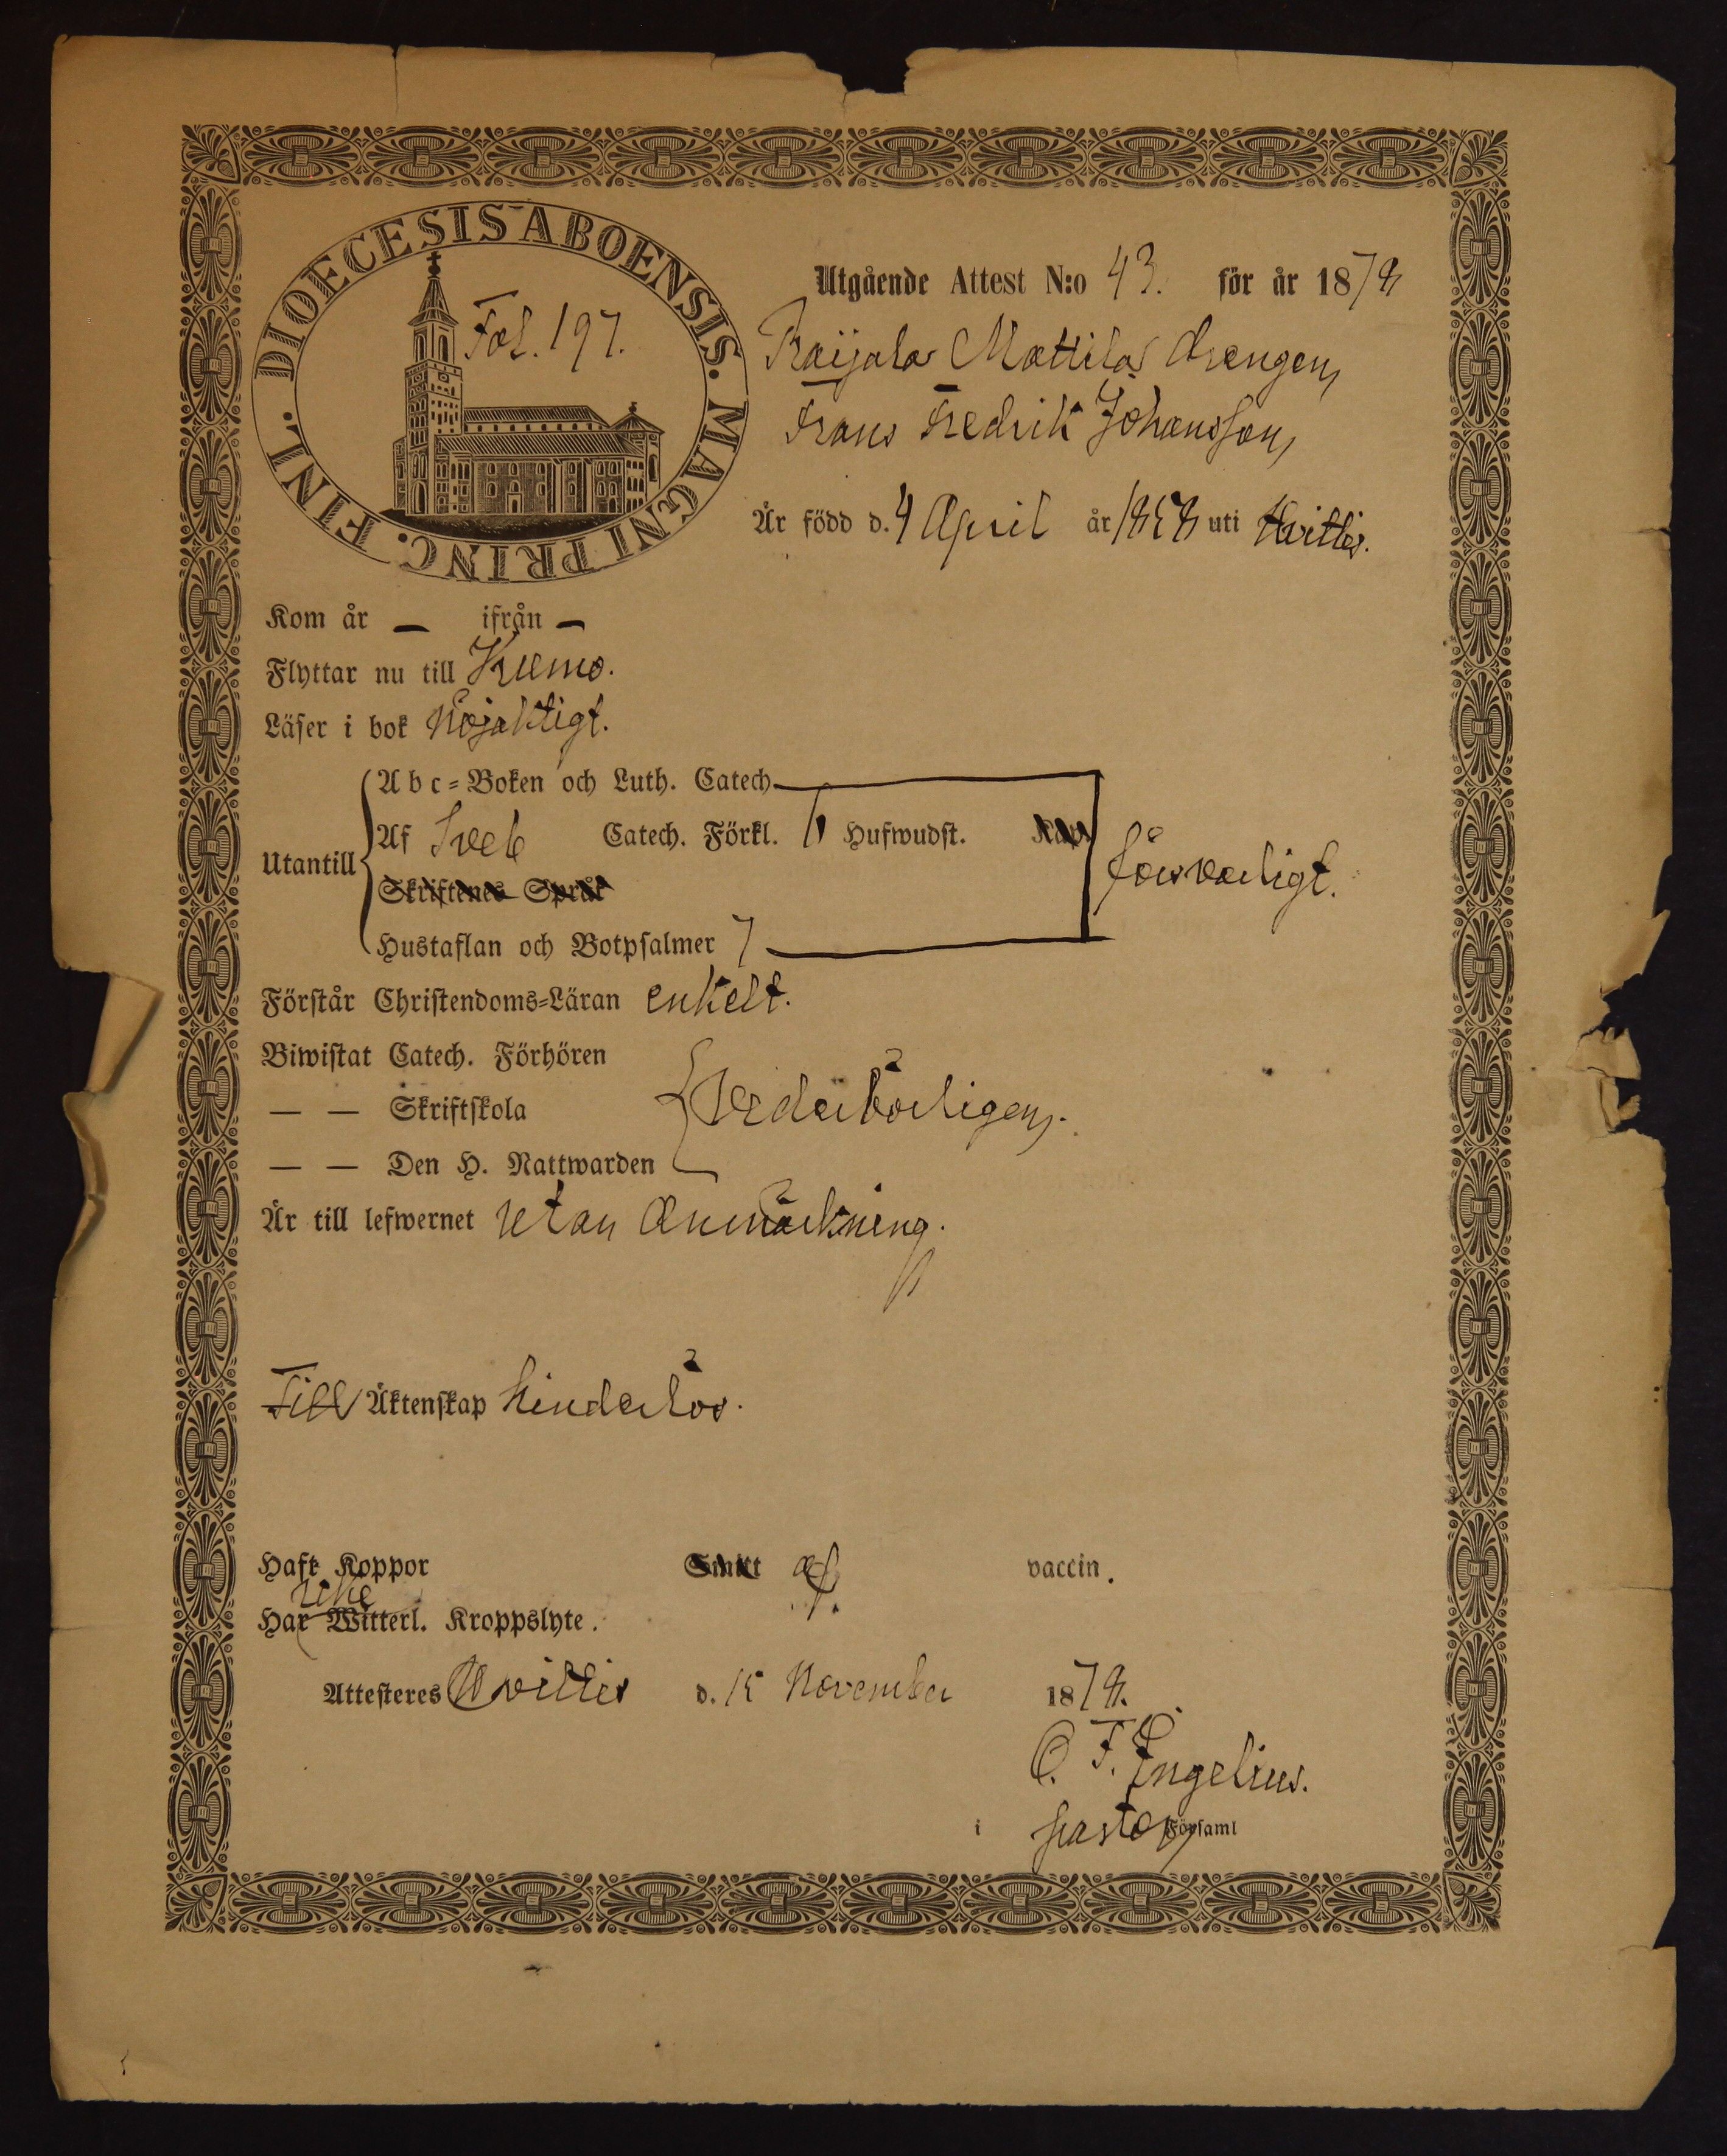 DIOECESIS ABOENSIS. MAGNI PRINC. FINL.
Fol. 197.
Utgående Attest N:o 43. för år 1878
Raijala Mattila drengen
Frans Fredrik Johansson
Är född d. 4 April år 1858 uti Hvittis.
Kom år — ifrån —
Flyttar nu till Kumo.
Läser i bok Nöjaktigt.
Utantill
Abc-Boken och Luth. Catech.
Af Sveb Catech. Förkl. 6 Hufwudst. Kap.
Skriftenes Språk
Hustaflan och Botpsalmer 7
försvarligt.
Förstår Christendoms-Läran enkelt.
Biwistat Catech. Förhören
— — Skriftskola
Vederbörligen.
— — Den H. Nattwarden
Är till lefwernet utan Anmärkning.
Till Äktenskap hinderlös.
Haft Koppor af vaccin.
icke
Har Witterl. Kroppslyte.
Attesteres Hvittis d. 15 November 1878.
C. F. Engelius.
i pastor Församl